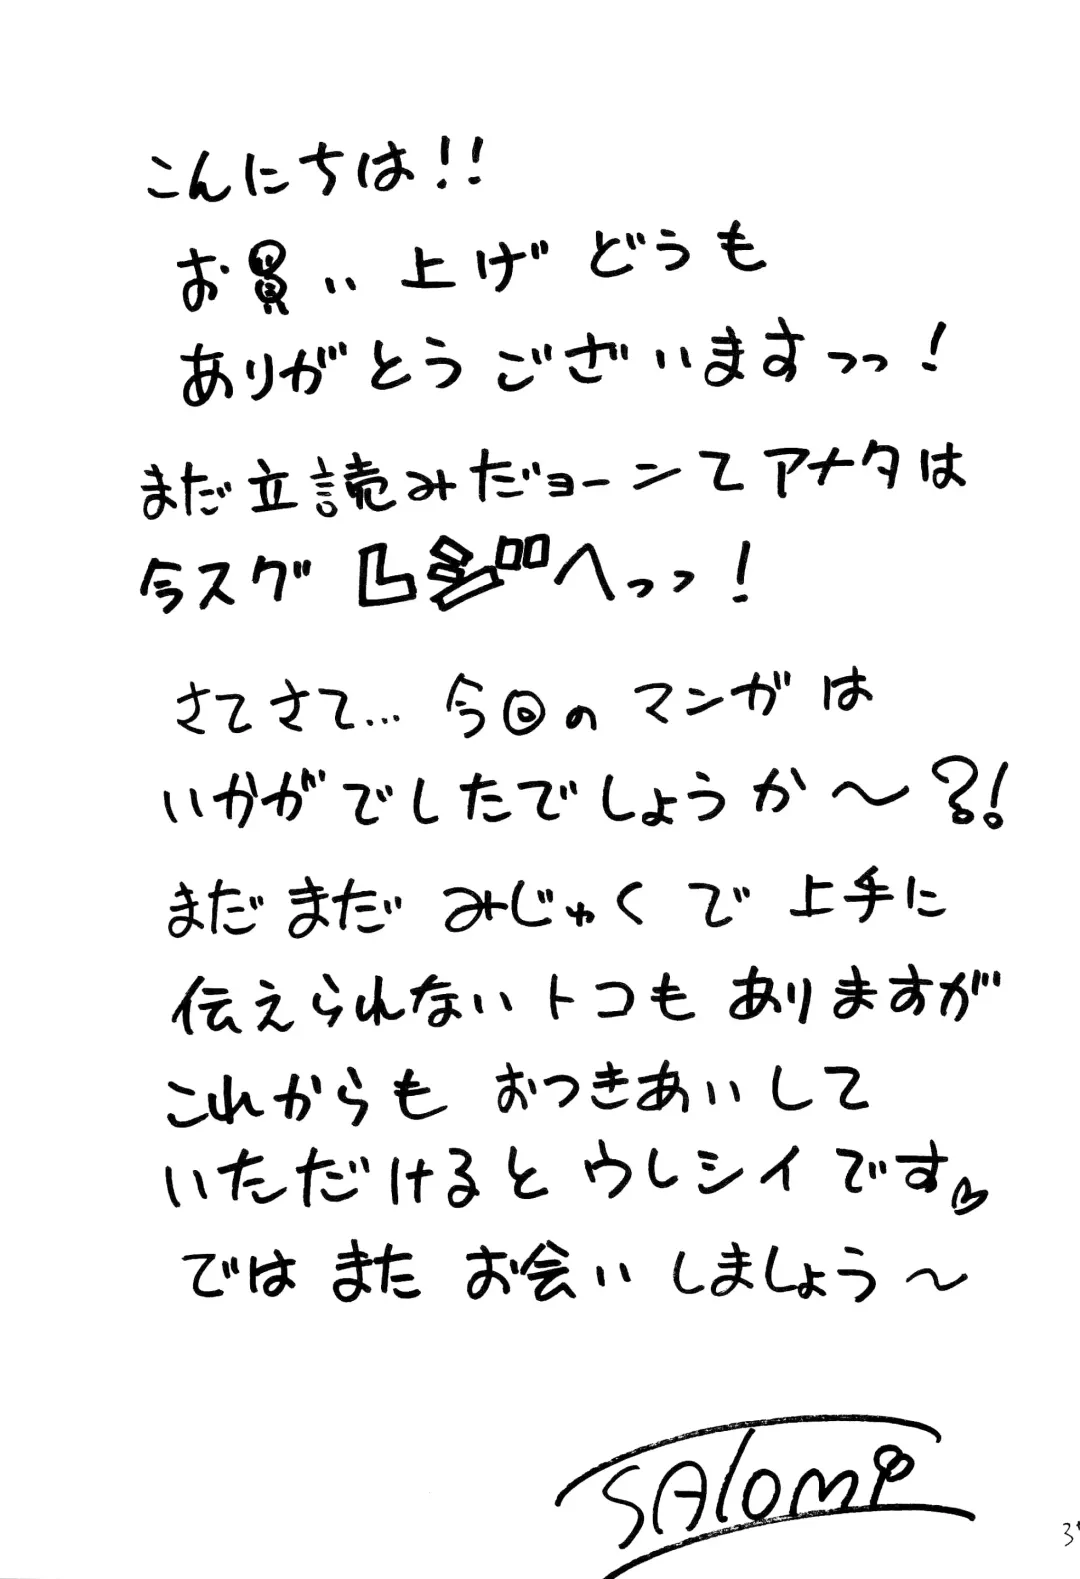 こんにちは!!
お買い上げどうも
ありがとうございますっっ!
まだ立読みだョーンてアナタは
今スグレジへっっ!
さてさて… 今回のマンガは
いかがでしたでしょうか〜?!
まだまだみじゅくで上手に
伝えられないトコもありますが
これからもおつきあいして
いただけるとウレシイです♡
ではまたお会いしましょう〜
SAlomi